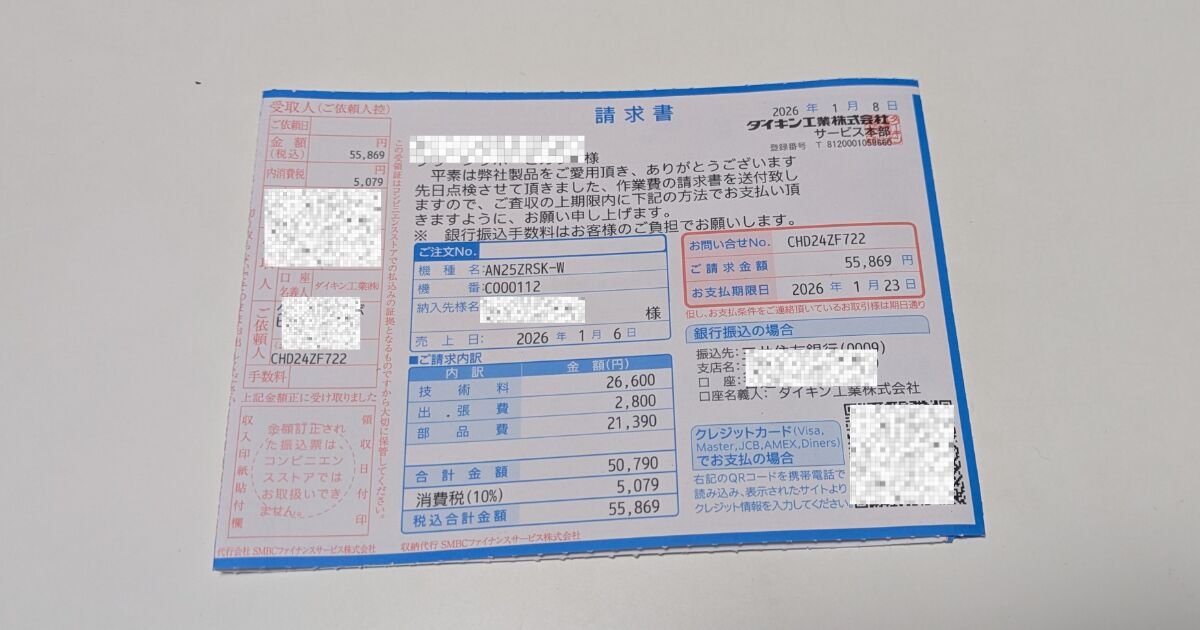 受取人(ご依頼人控)
ご依頼日
金額(税込)
円
55,869
内消費税
円
5,079
口座名義人
ダイキン工業㈱
ご依頼人
CHD24ZF722
手数料
上記金額正に受け取りました
収入印紙貼付欄
金額訂正され
た振込票は、
コンビニエン
スストアでは
お取扱いでき
ません。
領収日付印
代行会社 SMBCファイナンスサービス株式会社
この受領証はコンビニエンスストアでの払込みの証拠となるものですから大切に保管してください。
請求書
2026 年 1 月 8 日
ダイキン工業株式会社
サービス本部
登録番号 T 8120001059660
様
平素は弊社製品をご愛用頂き、ありがとうございます
先日点検させて頂きました、作業費の請求書を送付致し
ますので、ご査収の上期限内に下記の方法でお支払い頂
きますように、お願い申し上げます。
※ 銀行振込手数料はお客様のご負担でお願いします。
ご注文No.
機種名:AN25ZRSK-W
機番:C000112
納入先様名
様
売上日: 2026 年 1 月 6 日
お問い合せNo. CHD24ZF722
ご請求金額 55,869 円
お支払期限日 2026 年 1 月 23 日
但し、お支払条件をご連絡頂いているお取引様は期日通り
■ご請求内訳
内訳 金額(円)
技術料 26,600
出.張費 2,800
部品費 21,390
合計金額 50,790
消費税(10%) 5,079
税込合計金額 55,869
収納代行 SMBCファイナンスサービス株式会社
銀行振込の場合
振込先:三井住友銀行(0009)
支店名:
口座:
口座名義人: ダイキン工業株式会社
クレジットカード(Visa,
Master,JCB,AMEX,Diners)
でお支払の場合
右記のQRコードを携帯電話で
読み込み、表示されたサイトより
クレジット情報を入力してください